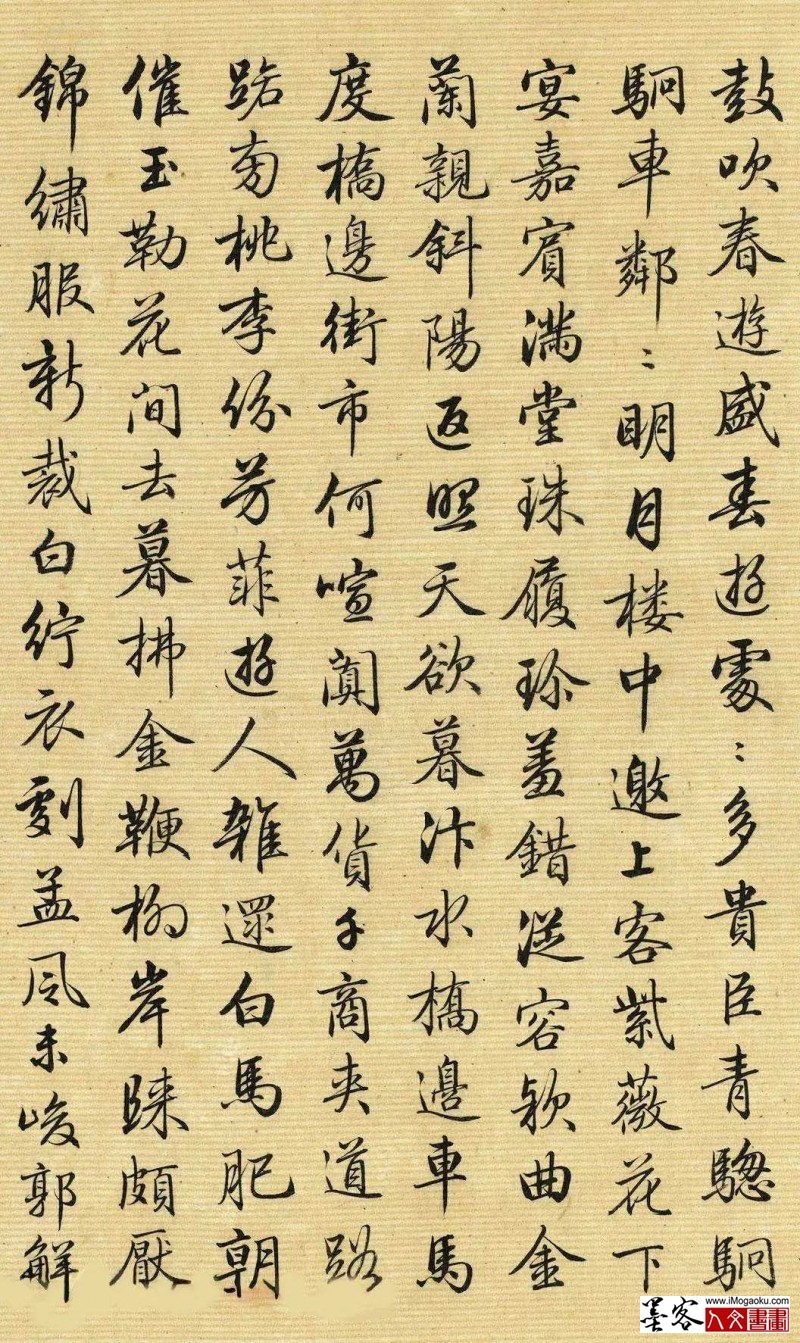 鼓吹春遊盛春遊處〻多貴臣青驄駉
駉車鄰〻明月楼中邀上客紫薇花下
宴嘉賓滿堂珠履珍羞錯從容款曲金
蘭親斜陽返照天欲暮汴水橋邊車馬
度橋邊街市何喧闐萬貨千商夾道路
路旁桃李份芳菲遊人雜遝白馬肥朝
催玉勒花间去暮拂金鞭柳岸歸頗厭
錦繡服新裁白紵衣劇孟风未峻郭解
墨客
www.iMogaoku.com
人文書畫